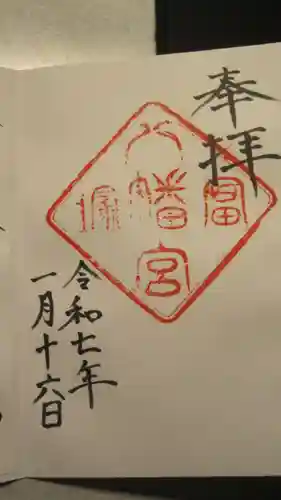 奉拝
八幡宮
令和七年
一月十六日